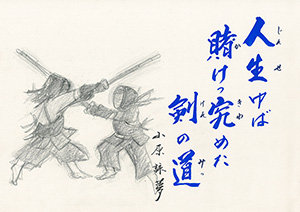 じんせ
人生ゆば
か きわ
賭けっ究めた
けん みっ
剣の道
小原